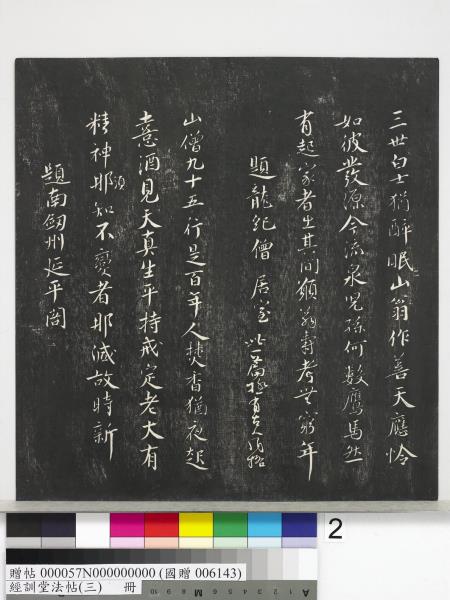 三世白士猶醉眠山翁作善天應怜
如彼發源今流泉兒孫何數鷹馬然
有起家者出其間願翁壽考無窮年
題龍紀僧居室 此一篇極有古人風格
山僧九十五行是百年人焚香猶夜起
喜酒見天真生平持戒定老大有
精神耶須知不變者耶減故時新
題南劒州延平閣
2
贈帖 000057N000000000 (國贈 006143)
經訓堂法帖(三) 冊